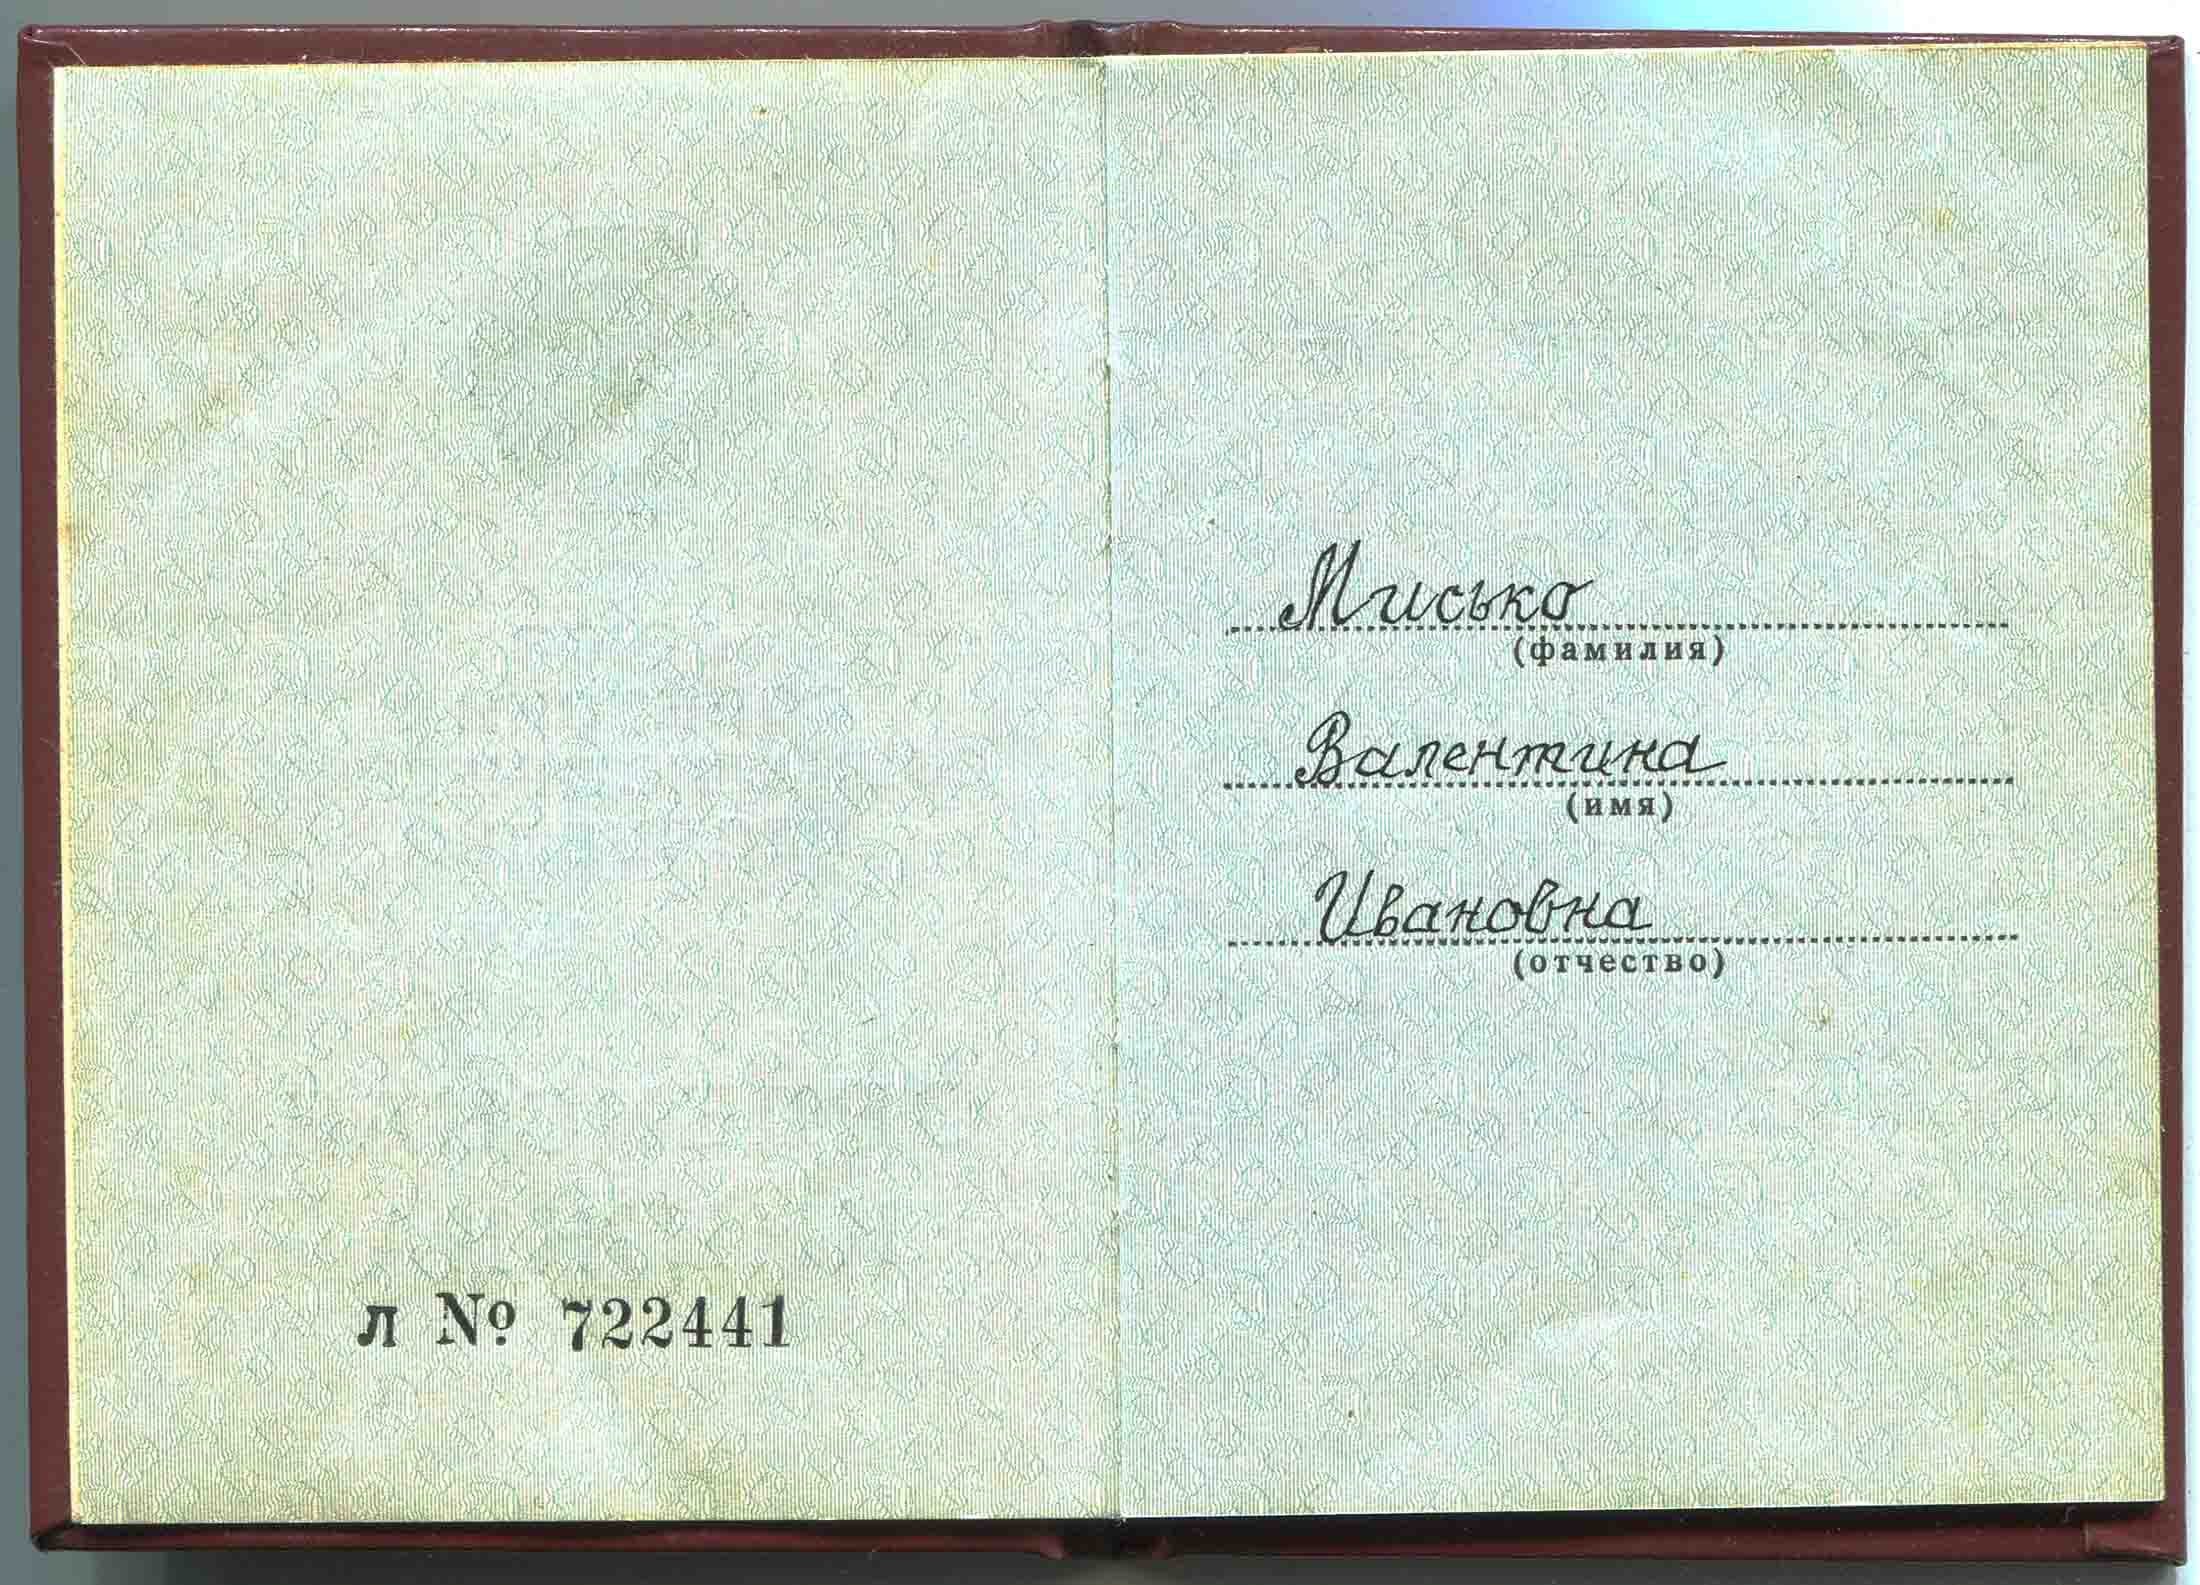 л № 722441
Мисько
(фамилия)
Валентина
(имя)
Ивановна
(отчество)